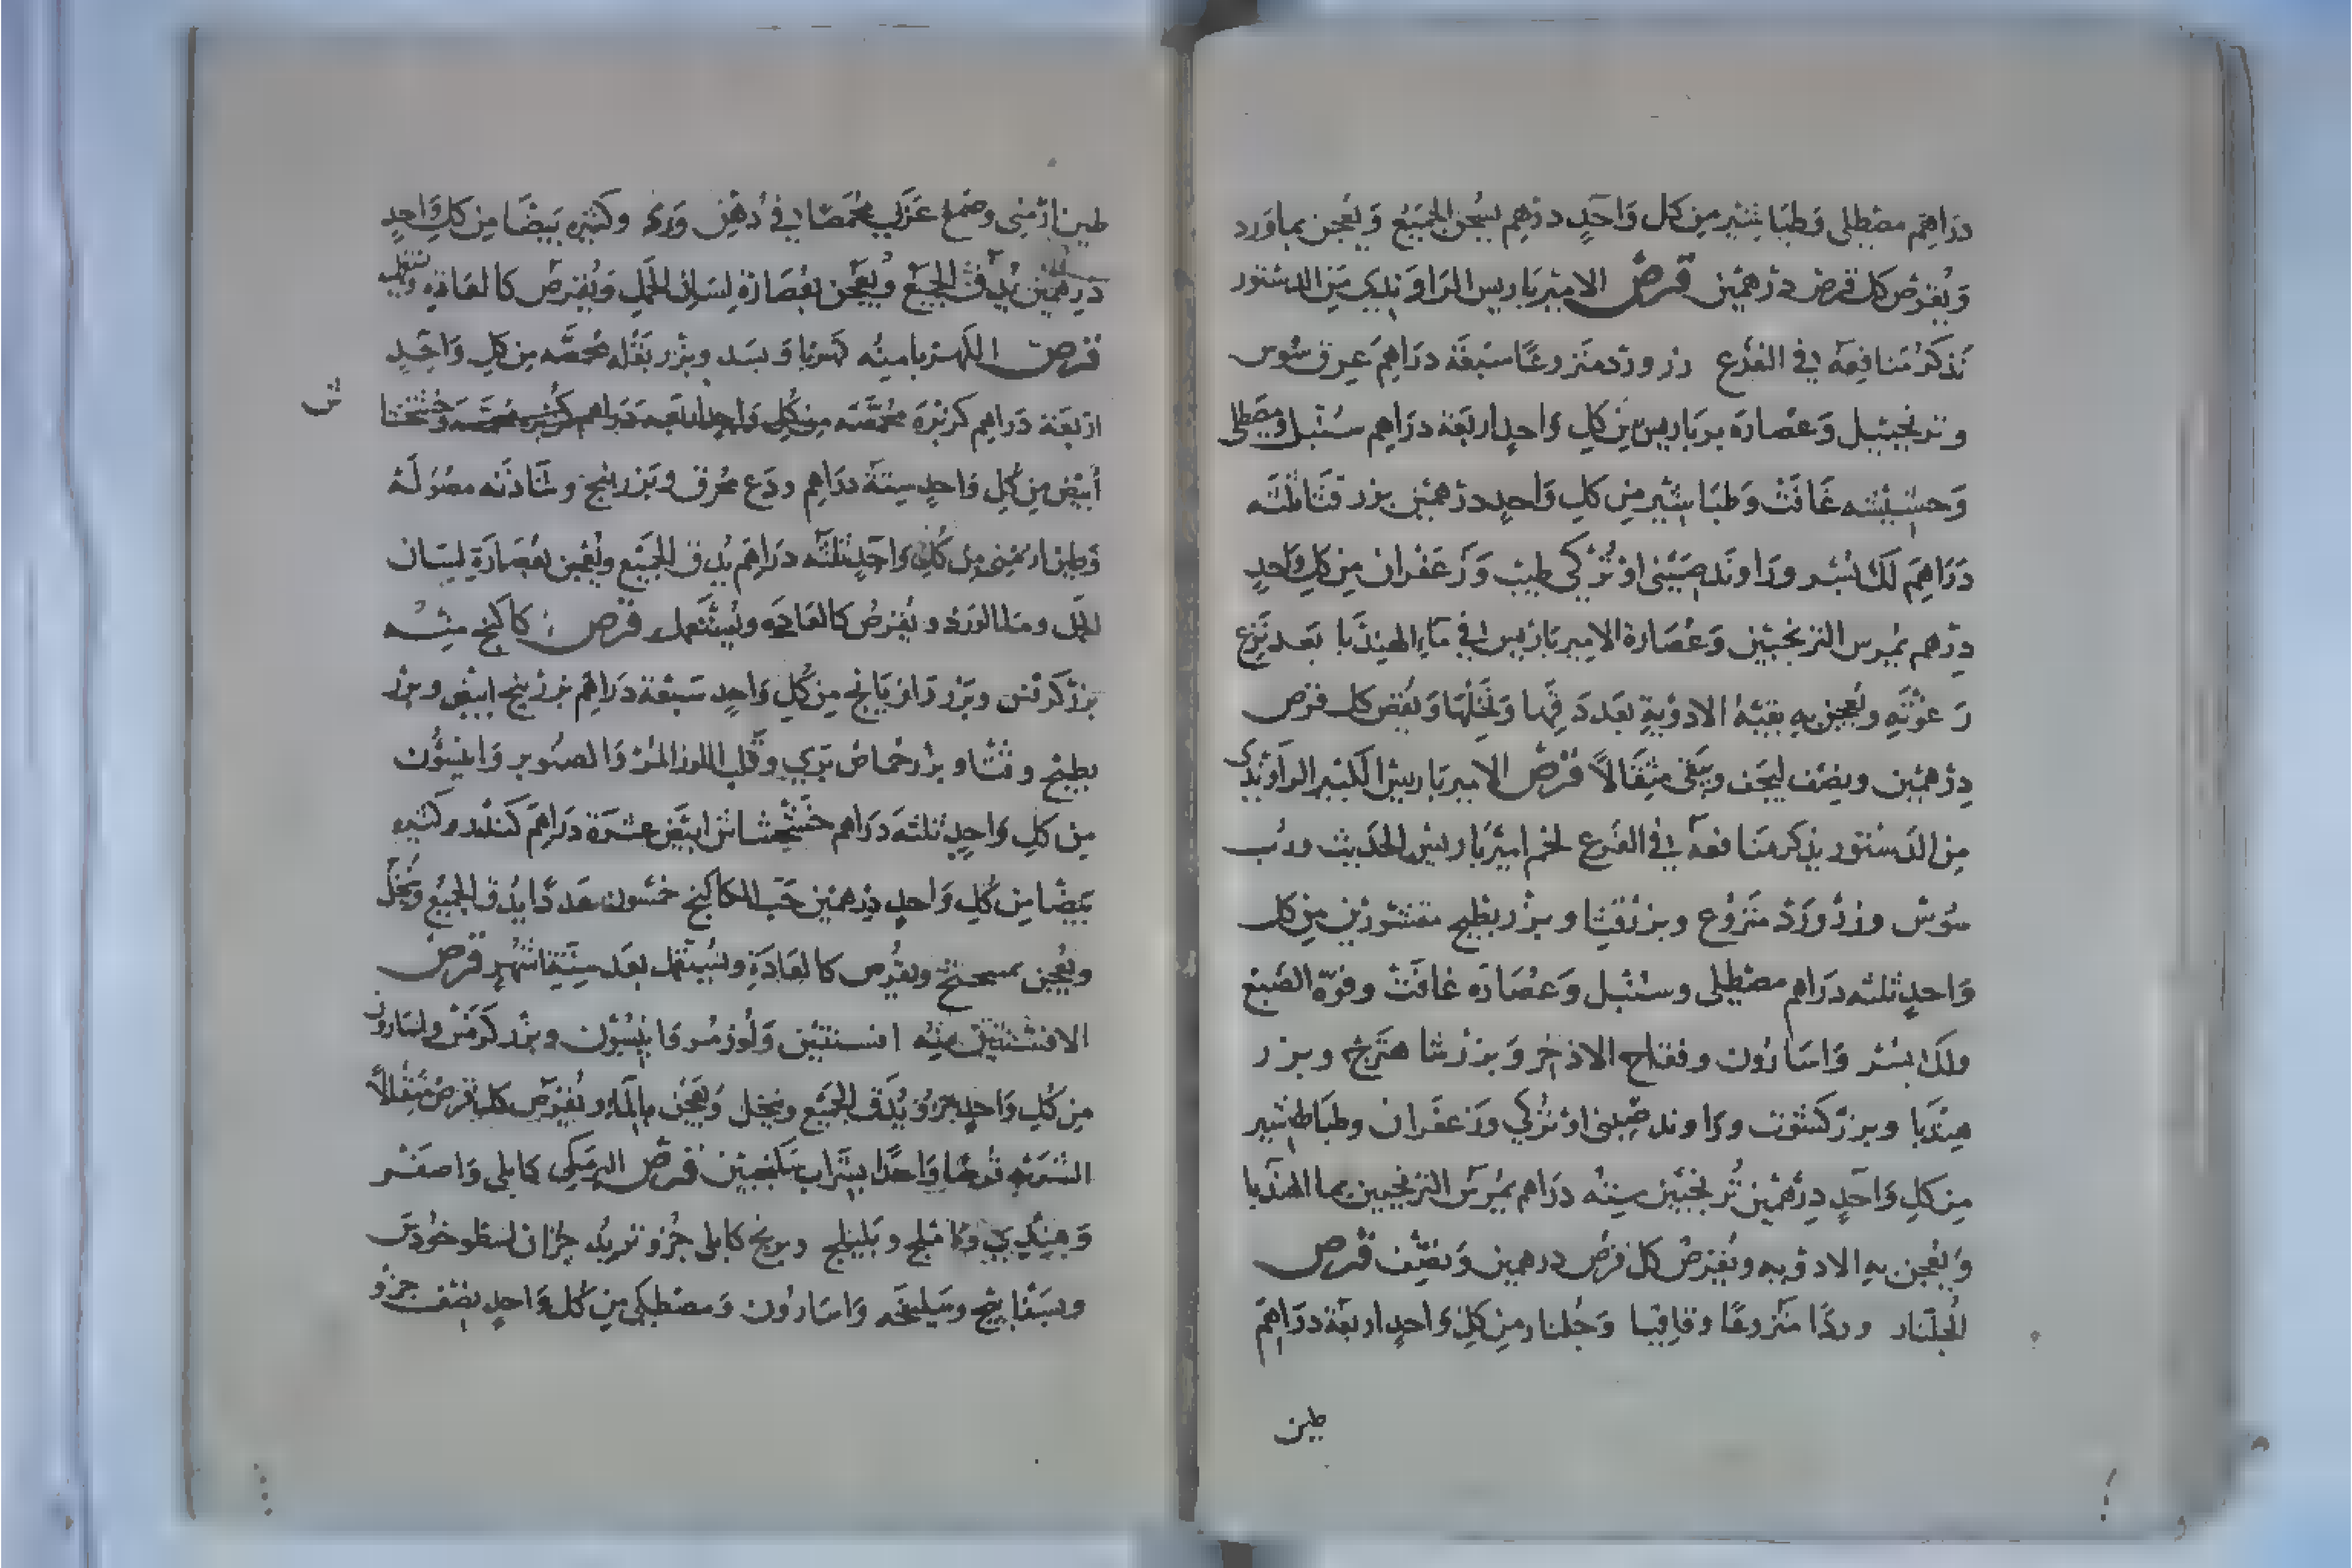 دراهم مصطكى وطباشير من كل واحد درهم يسحق الجميع ويعجن بماورد
ويقرض كل قرض درهمين قرض الاميرباريس الراوندي من الدستور
تذكر منافعه في الفرع زر ورد منزوعا سبعة دراهم عرق سوس
وترنجبيل وعصارة برباريس من كل واحد اربعة دراهم سنبل ومصطكى
وحشيشه غافت وطباشير من كل واحد درهمين بزر قثا ثلثه
دراهم لك بسر وراوند صيني او تركي طيب وزعفران من كل واحد
درهم يمرس الترنجبين وعصارة الاميرباريس في ماء الهندبا بعد نزع
رغوته ويعجن به بقية الادوية بعد دقها ونخلها ويقرض كل قرص
درهمين ونصف ليجف ويبقى مثقالا قرض الاميرباريس الكبير الراوندي
من الدستور يذكر منافعه في الفرع لحم اميرباريس الحديث ورب
سوس وزر ورد منزوع وبزر قثا وبزر بطيح مقشورين من كل
واحد ثلثه دراهم مصطكى وسنبل وعصاره غافث وفوة الصبغ
ولك بسر واسارون وفقاح الاذخر وبزر شاهترج وبزر
هندبا وبزر كشوت وراوند صيني او تركي وزعفران وطباطشير
من كل واحد درهمين ترنجبين ستة دراهم يمرس الترنجبين بما الهندبا
ويعجن به الادويه ويقرض كل قرص درهمين ونصف قرص
الجلنار وردا منزوعا وقاقيا وجلنار من كل واحد اربعة دراهم
طين
طين ارمني وصمغ عربي محمصا في دهن ورد وكثيره بيضا من كل واحد
درهمين يدق الجميع ويعجن بعصارة لسان الحمل ويقرص كالعاده
قرص الكهربا مينه كهربا وبسد وبزر بقله محمصه من كل واحد
اربعة دراهم كزبرة محمصه من كل واحد اربعه دراهم وخشخا
ش
أبيض من كل واحد ستة دراهم ودع محرق وبزر بنج وشاذنه مصولة
وطين ارميني من كل واحد ثلثه دراهم يدق الجميع ويعجن بعصارة لسان
الحمل وما الورد ويقرض كالعاده ويستعمل قرص كاكنج منه
بزر كرفس وبزر رازيانج من كل واحد سبعة دراهم بزر بنج ابيض وبزر
بطيح وقثا وبزر حماض بري وقلب اللوز المر والصنوبر وانيسون
من كل واحد ثلثه دراهم خشخشاش ابيض عشرة دراهم كندر وكثيره
بيضا من كل واحد درهمين حب الكاكنج خمسون عددا يدق الجميع وينخل
ويعجن بميبختج ويقرص كالعادة ويستعمل بعد ستة اشهر قرض
الافسنتين مينه افسنتين ولوز مر وانيسون وبزر كرفس واسارون
من كل واحد جزو يدق الجميع وينخل ويعجن بالما ويقرص كل قرص مثقالا
الشربه قرصا واحدا بشراب سكنجبين قرض البرمكي كابلي واصفر
وهندي واملج وبليلج وبرنج كابلي جزو تربد جزان اسطوخودس
وبسفايج وسليخه واسارون ومصطكي من كل واحد نصف جزو